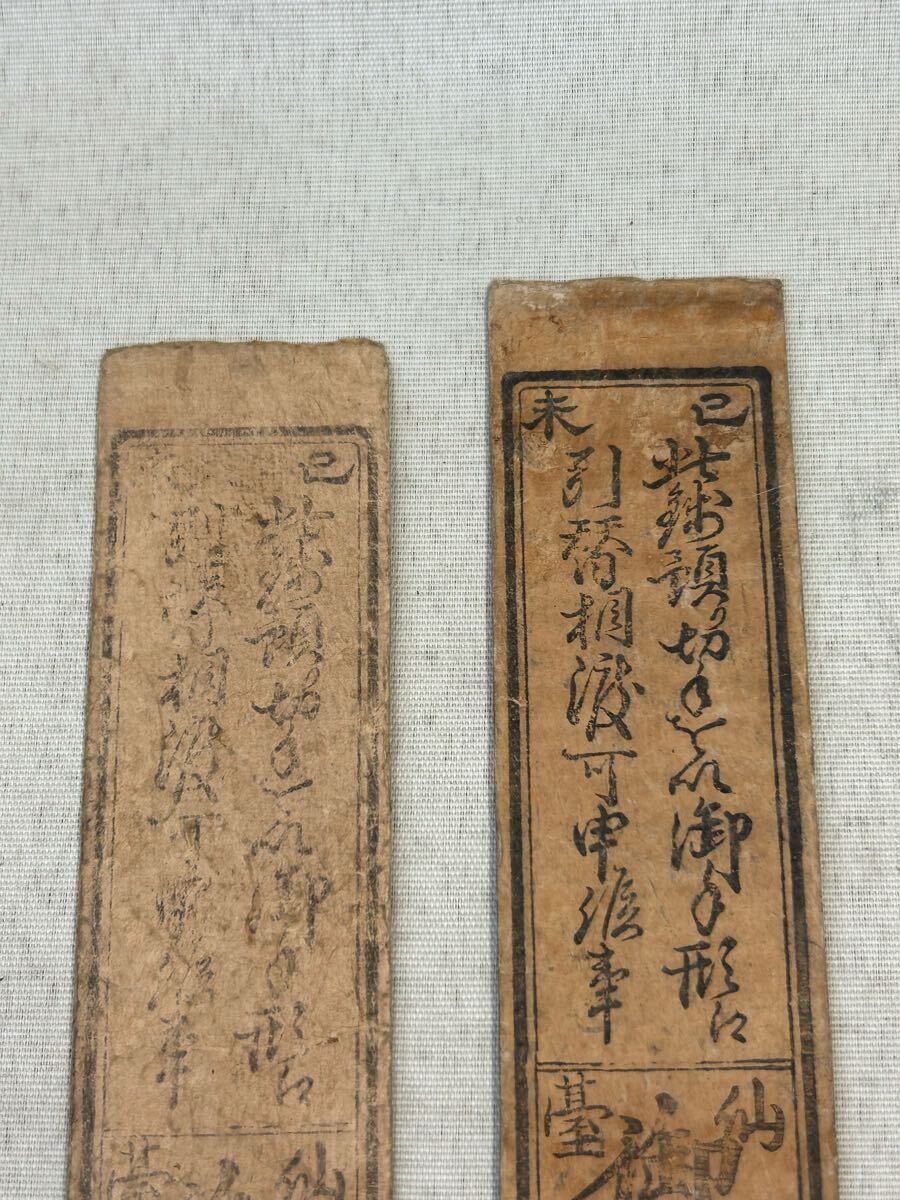 巳
未
此錢預り切手を以御手形江
引替相渡可申候事
仙
臺
御
巳
此預り切手を以御手形江
引替相渡可申候事
仙
臺